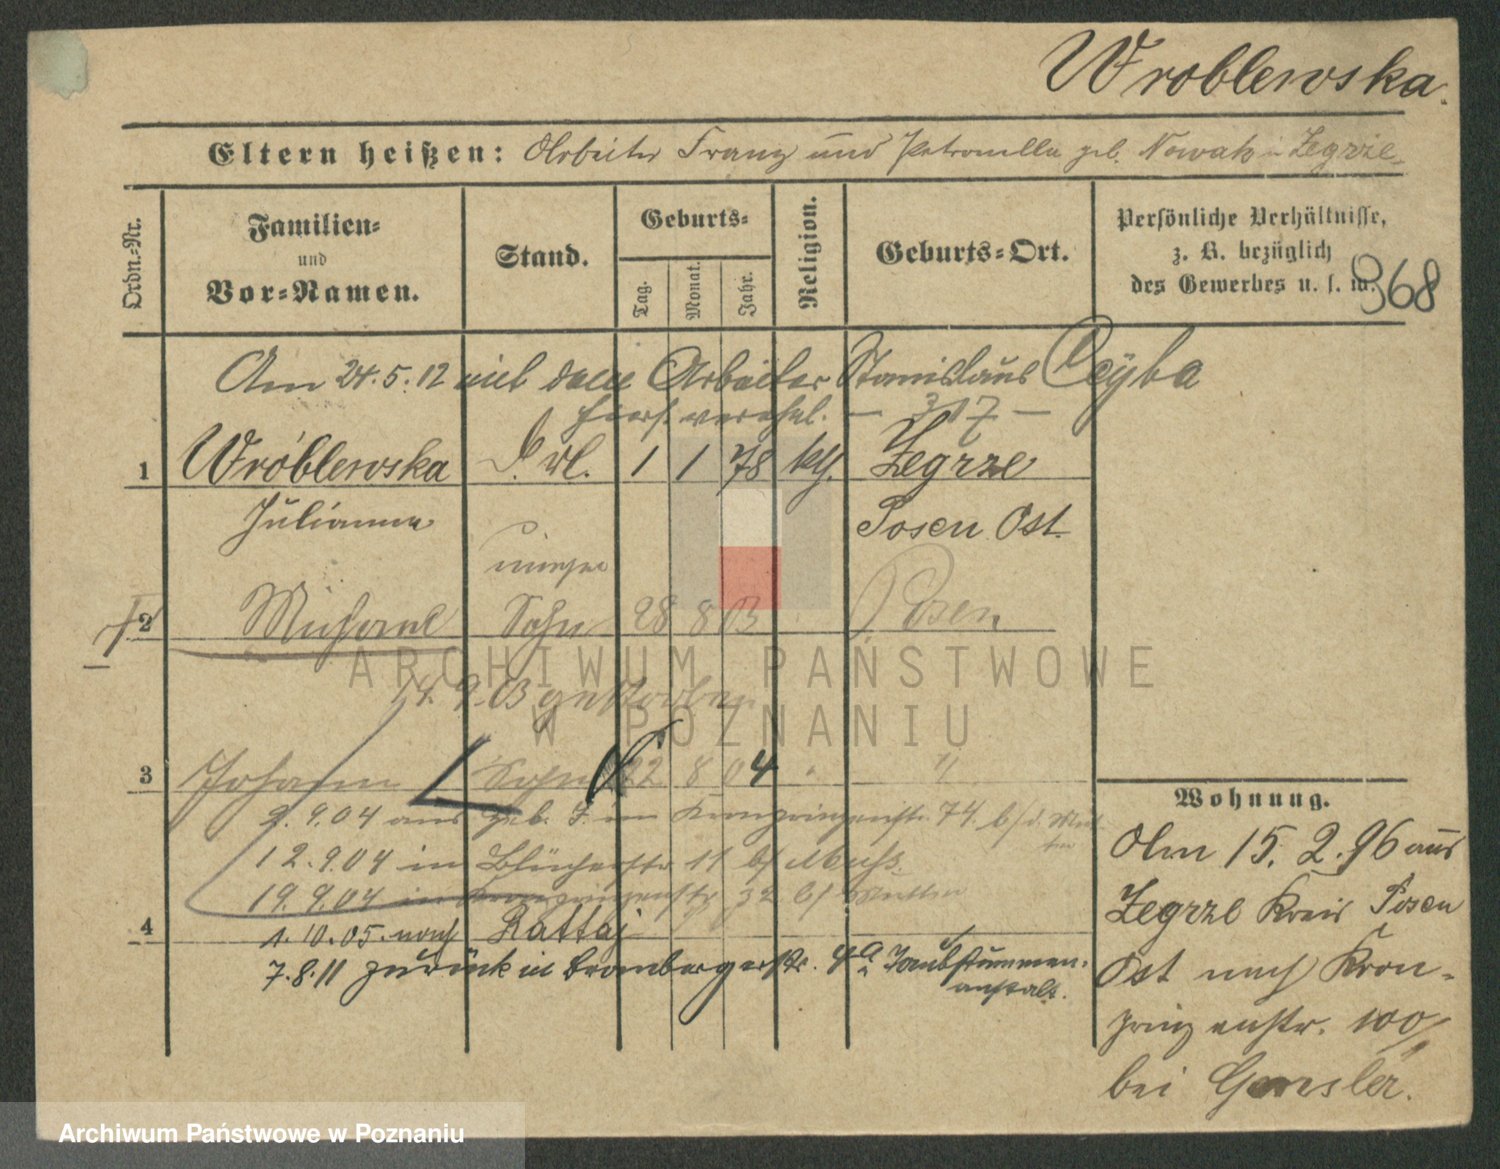 Wroblewska.
Eltern heißen: Arbeiter Franz und Petronella geb. Nowak in Zegrze
Ordn.-Nr.
Familien-
und
Vor-Namen.
Stand.
Geburts-
Tag.
Monat.
Jahr.
Religion.
Geburts-Ort.
Persönliche Verhältnisse,
z. B. bezüglich
des Gewerbes u. s. w.
368
Am 24.5.12 mit dem Arbeiter Stanislaus Ceyba
hier verehel. — 317 —
1 Wróblewska 1 1 78 kth. Zegrze
Julianna Posen Ost.
2 Michael Sohn 28 8 03 Posen
14.9.03 gestorben
3 Johann Sohn 22 8 04 "
2.9.04 aus geb. Kronprinzenstr. 74 b/d. Mutter
12.9.04 in Blücherstr 11 b/
19.9.04 in Kronprinzenstr 32 b/ Mutter
4 1.10.05 nach Rattaj
7.8.11 zurück in Brombergerstr. 4a Taubstummen-
anstalt.
Wohnung.
Am 15. 2. 96 aus
Zegrze Kreis Posen
Ost nach Kron-
prinzenstr. 100/
bei Gensler.
ARCHIWUM PAŃSTWOWE
W POZNANIU
Archiwum Państwowe w Poznaniu